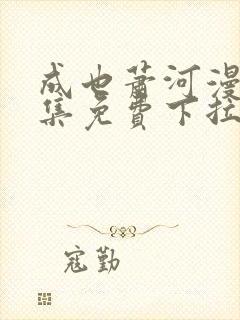 成也萧河漫
集免費下拉
寇勤